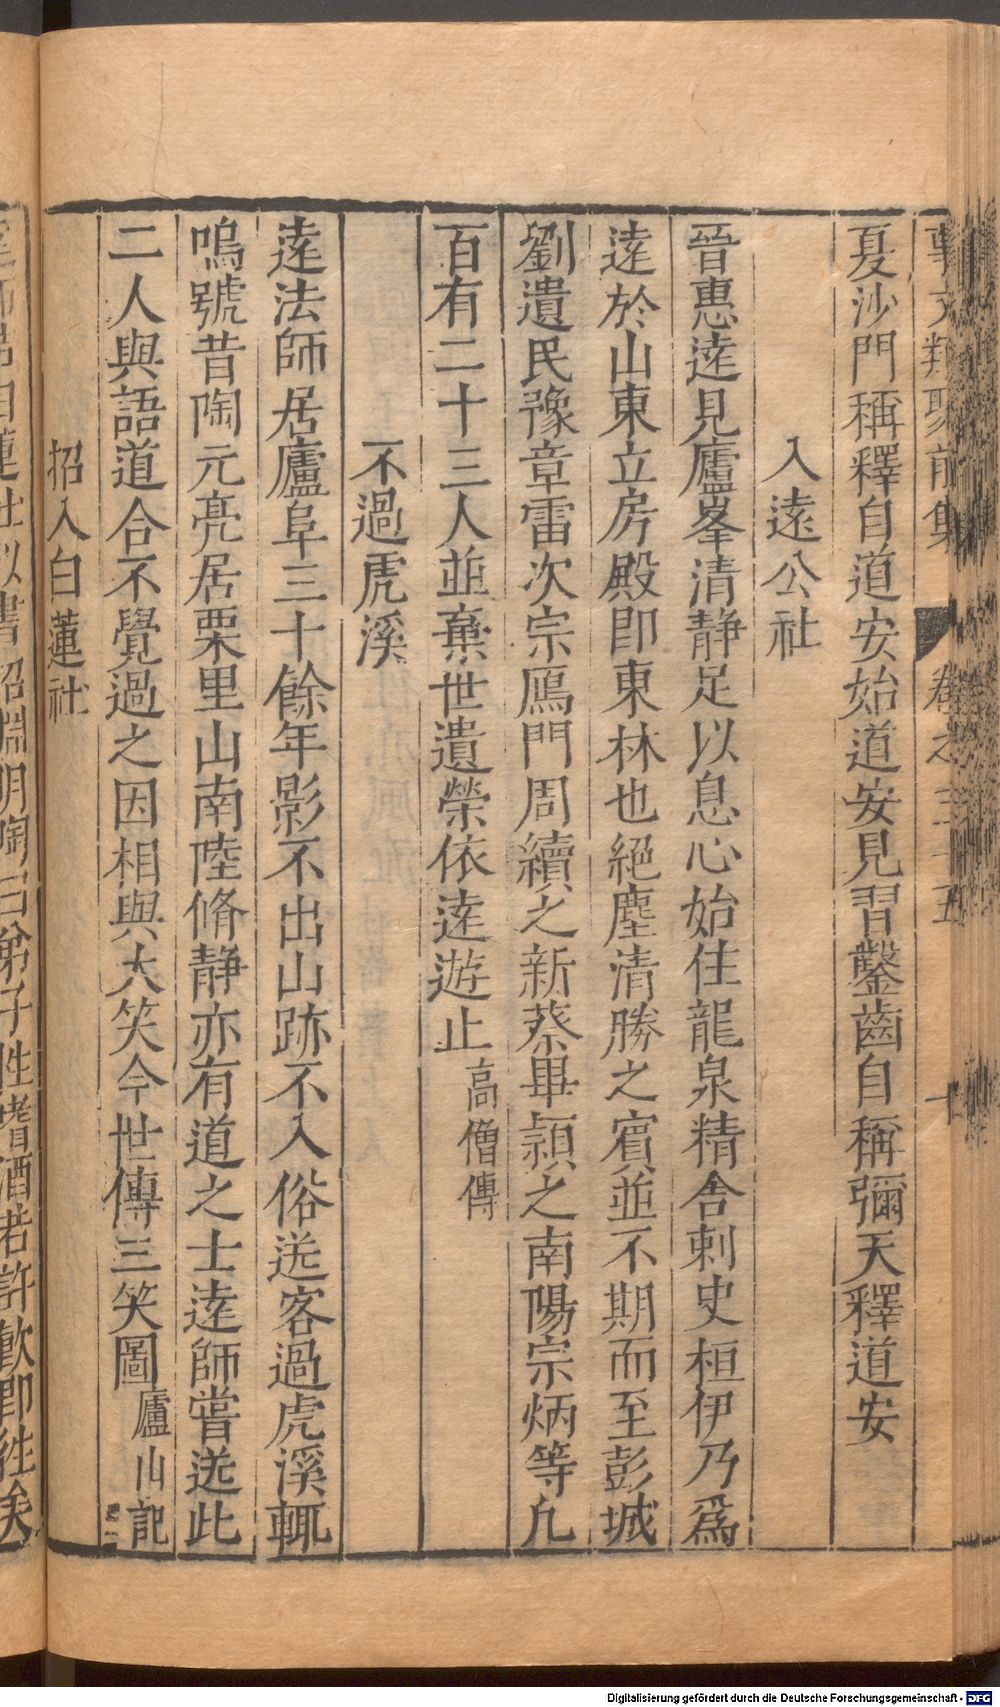 事文類聚前集 卷之三十五 十
夏沙門稱釋自道安始道安見習鑿齒自稱彌天釋道安
入遠公社
晉惠逺見廬峯清静足以息心始住龍泉精舍刺史桓伊乃爲
逺於山東立房殿即東林也絕塵清勝之賔並不期而至彭城
劉遺民豫章雷次宗鴈門周續之新蔡畢頴之南陽宗炳等凡
百有二十三人並棄世遺榮依逺遊止 高僧傳
不過虎溪
逺法師居廬阜三十餘年影不出山跡不入俗送客過虎溪輒
鳴號昔陶元亮居栗里山南陸脩静亦有道之士逺師嘗送此
二人與語道合不覺過之因相與大笑今世傳三笑圖 廬山記
招入白蓮社
逺師結白蓮社以書招淵明陶曰弟子性嗜酒若許飲即往矣
Digitalisierung gefördert durch die Deutsche Forschungsgemeinschaft - DFG